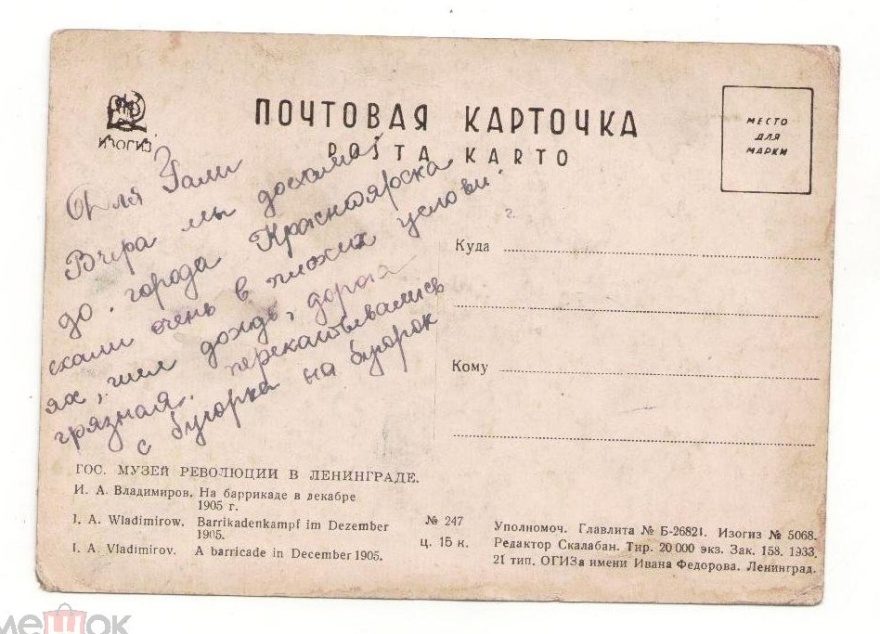 ИЗОГИЗ
ПОЧТОВАЯ КАРТОЧКА
POŜTA KARTO
МЕСТО
ДЛЯ
МАРКИ
Для Гали
Вчера мы доехали
до города Красноярска
ехали очень в плохих услови
ях, шел дождь, дорога
грязная. перекатывались
с бугорка на бугорок
Куда
Кому
ГОС. МУЗЕЙ РЕВОЛЮЦИИ В ЛЕНИНГРАДЕ.
И. А. Владимиров. На баррикаде в декабре
1905 г.
I. A. Wladimirow. Barrikadenkampf im Dezember
1905.
I. A. Vladimirov. A barricade in December 1905.
№ 247
ц. 15 к.
Уполномоч. Главлита № Б-26821. Изогиз № 5068.
Редактор Скалабан. Тир. 20 000 экз. Зак. 158. 1933.
21 тип. ОГИЗа имени Ивана Федорова. Ленинград.
мешок